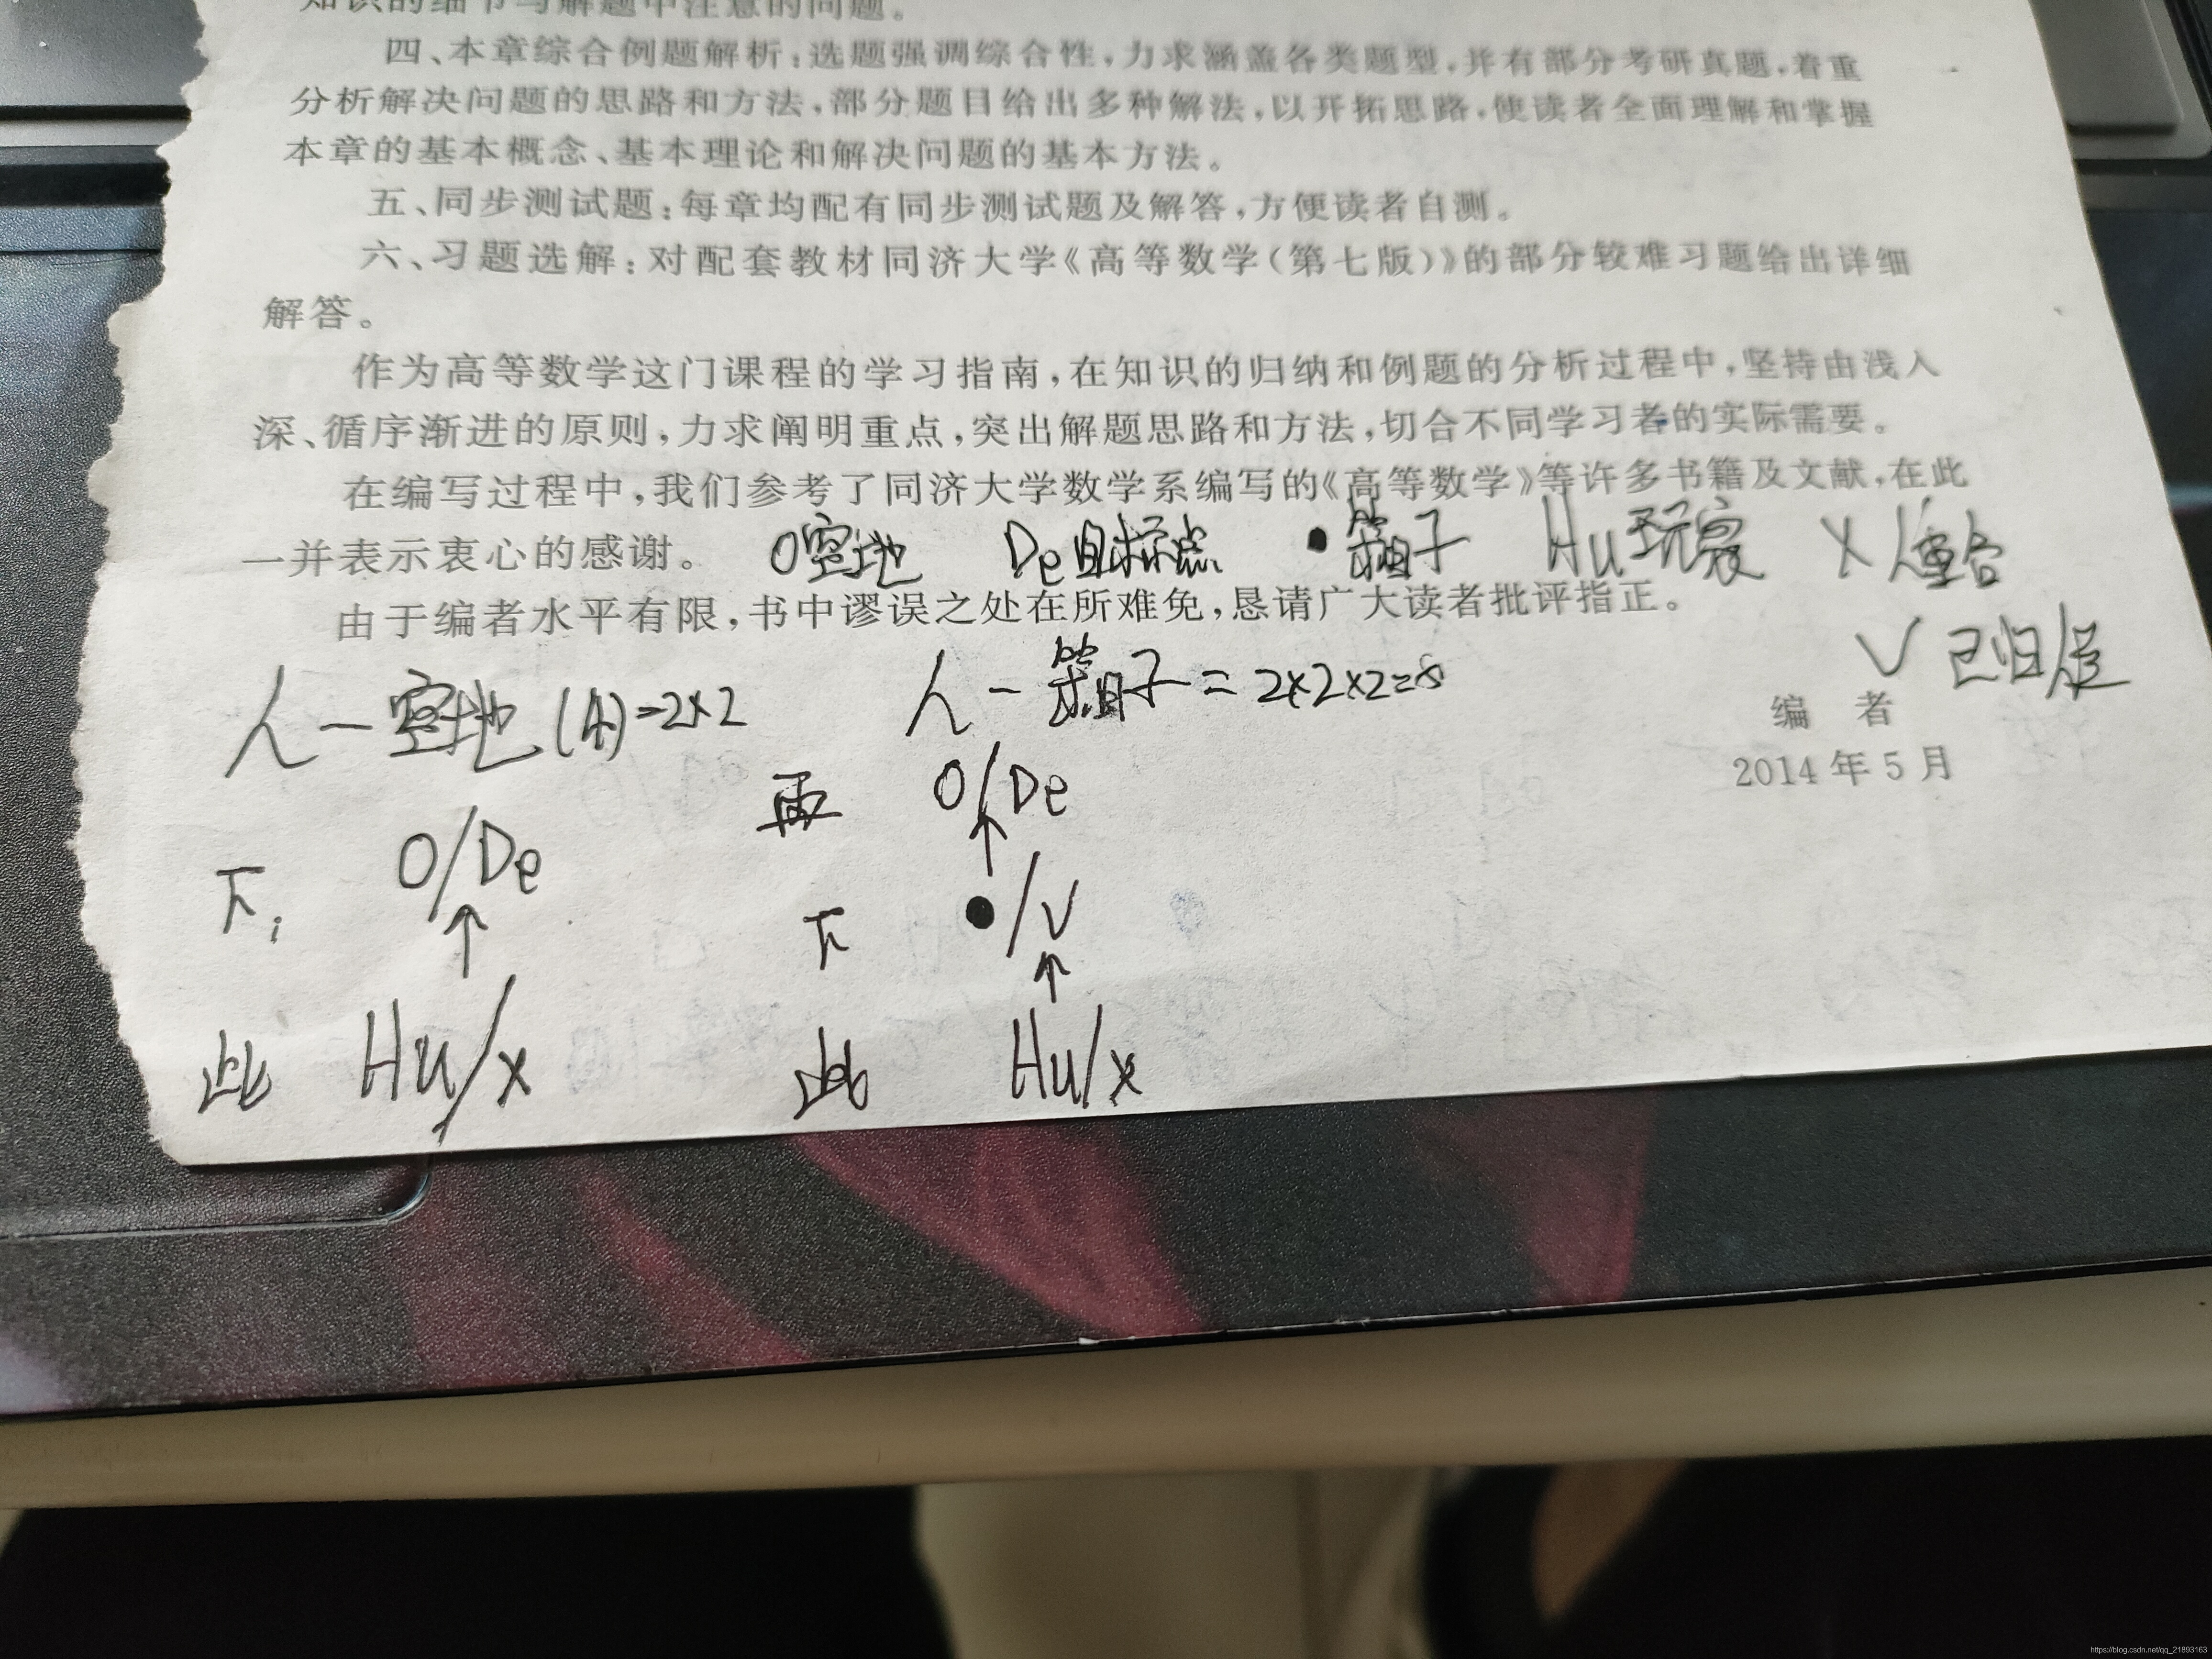 知识的细节与解题中注意的问题。
四、本章综合例题解析：选题强调综合性，力求涵盖各类题型，并有部分考研真题，着重
分析解决问题的思路和方法，部分题目给出多种解法，以开拓思路，使读者全面理解和掌握
本章的基本概念、基本理论和解决问题的基本方法。
五、同步测试题：每章均配有同步测试题及解答，方便读者自测。
六、习题选解：对配套教材同济大学《高等数学（第七版）》的部分较难习题给出详细
解答。
作为高等数学这门课程的学习指南，在知识的归纳和例题的分析过程中，坚持由浅入
深、循序渐进的原则，力求阐明重点，突出解题思路和方法，切合不同学习者的实际需要。
在编写过程中，我们参考了同济大学数学系编写的《高等数学》等许多书籍及文献，在此
一并表示衷心的感谢。
O空地 De目标点 ●箱子 Hu玩家 X人重合
由于编者水平有限，书中谬误之处在所难免，恳请广大读者批评指正。
√ 已归位
编 者
2014 年 5 月
人－空地(4)=2×2
人－箱子=2×2×2=8
下 O/De
↑
此 Hu/x
再 O/De
↑
下 ●/√
↑
此 Hu/x
https://blog.csdn.net/qq_21893163